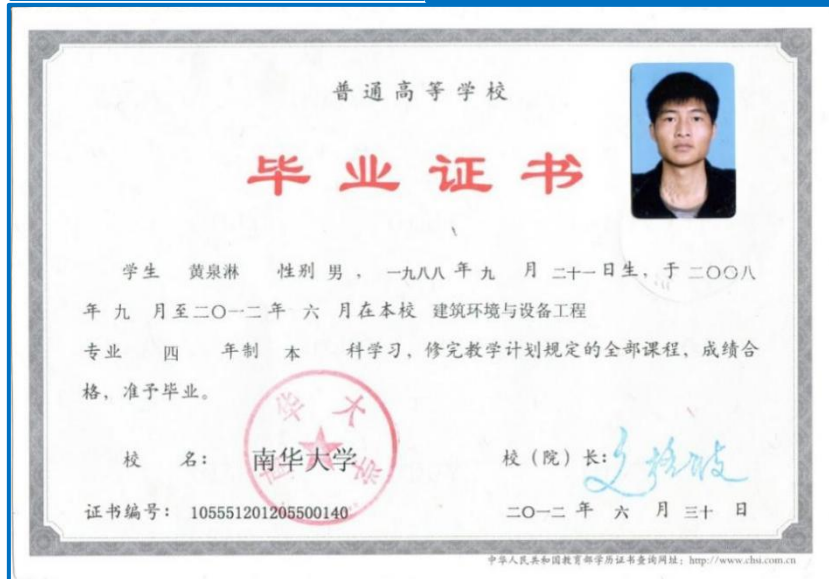 普通高等学校
毕业证书
学生 黄泉淋 性别 男 ， 一九八八 年 九 月 二十一 日生，于 二〇〇八
年 九 月至 二〇一二 年 六 月在本校 建筑环境与设备工程
专业 四 年制 本 科学习，修完教学计划规定的全部课程，成绩合
格，准予毕业。
校 名： 南华大学
校（院）长：
证书编号： 105551201205500140
二〇一二 年 六 月 三十 日
中华人民共和国教育部学历证书查询网址：http://www.chsi.com.cn